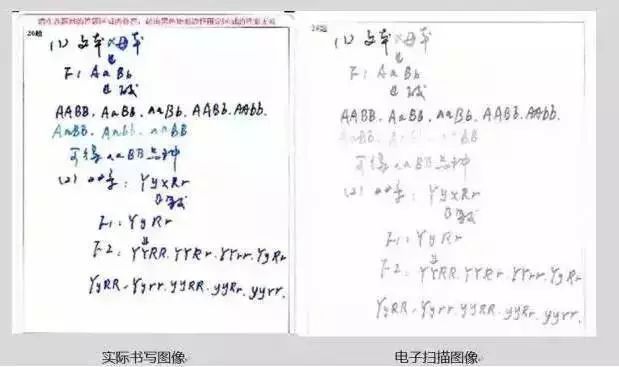 请在各题目的答题区域内作答,超出黑色矩形边框限定区域的答案无效
26题
(1) 父本×母本
F1 AaBb
AABB. AaBb. aaBb. AABb. AAbb.
AaBB. Aabb. aaBB
可得aaBB品种
(2) : YyxRr
F1: YyRr
F2: YYRR. YYRr. YYrr. YyRr
YyRR. Yyrr. yyRR. yyRr. yyrr.
实际书写图像
26题
(1) 父本×母本
F1 AaBb
AABB. AaBb. aaBb. AABb. AAbb.
AaBB. aaBB
可得aaBB品种
(2) : YyxRr
F1: YyRr
F2: YYRR. YYRr. YYrr. YyRr
YyRR. Yyrr. yyRR. yyRr. yyrr.
电子扫描图像